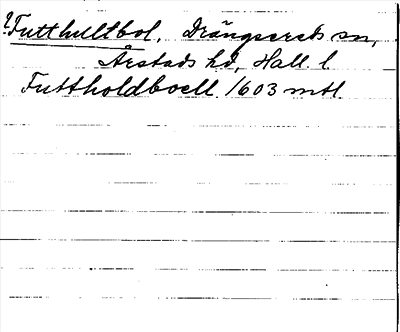 ?Futthultbol, Drängsereds sn,
Årstads hd, Hall. l
Futtholdboell 1603 mtl.